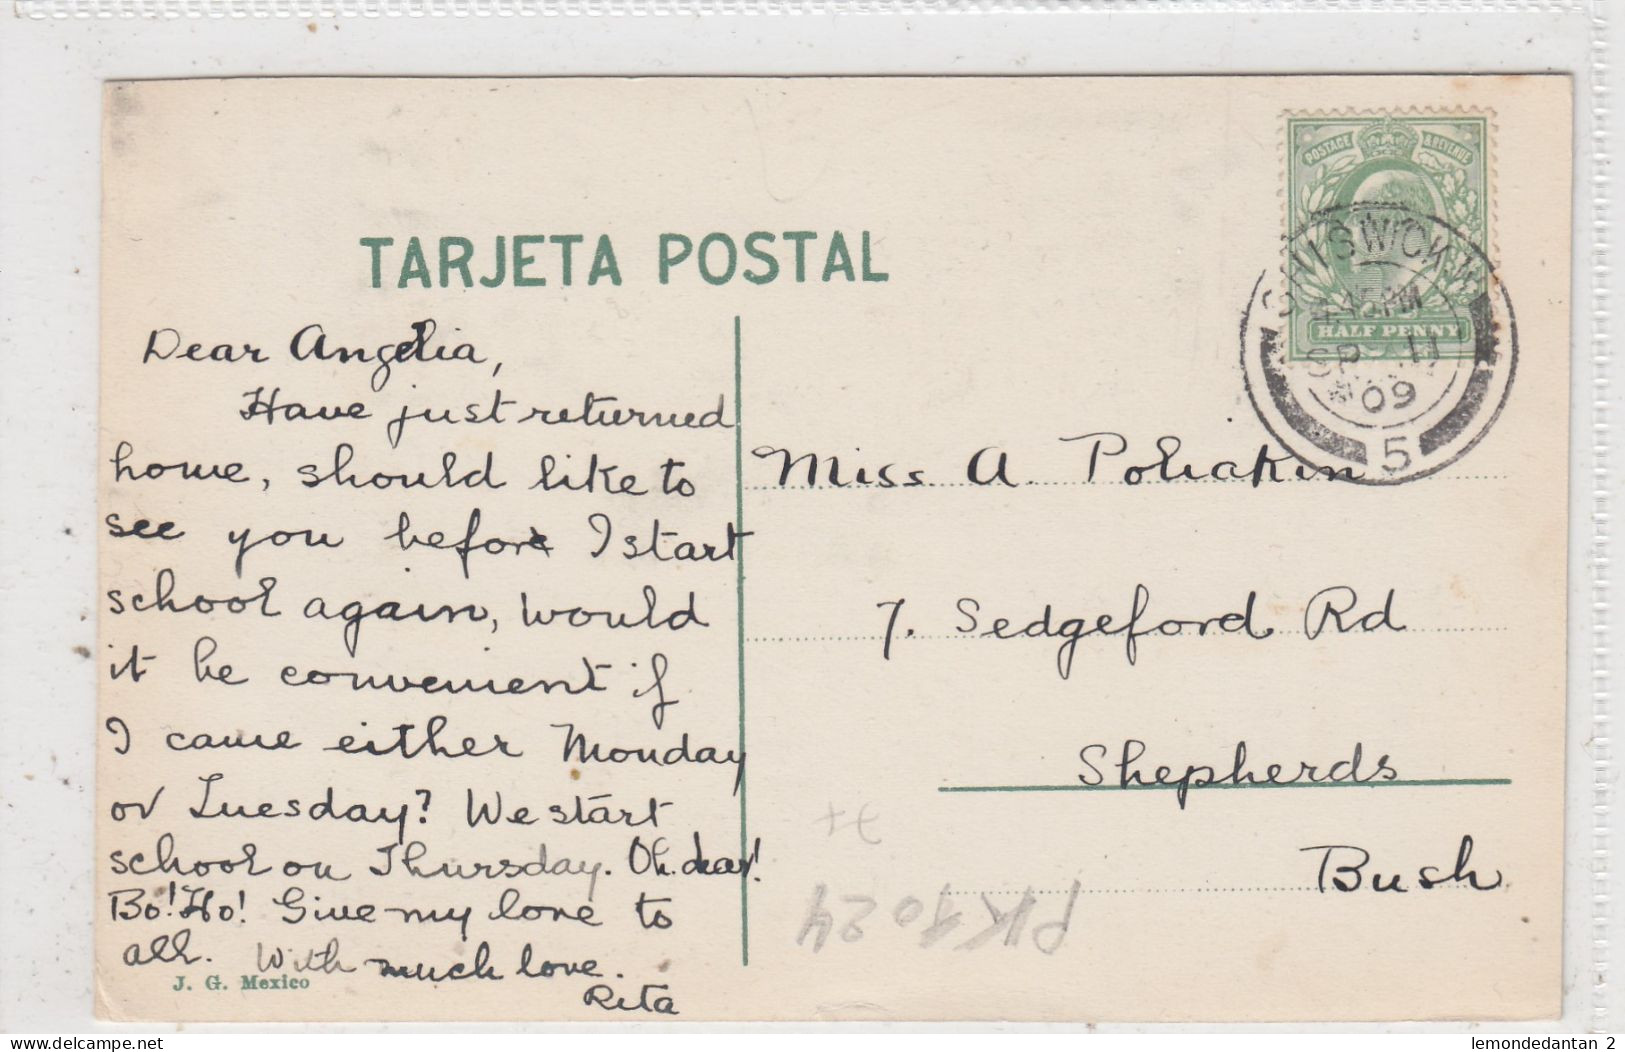 TARJETA POSTAL
POSTAGE & REVENUE
HALF PENNY
CHISWICK.W
4.45PM
SP 11
09
5
Dear Angelia,
Have just returned
home, should like to
see you before I start
school again, would
it be convenient if
I came either Monday
or Tuesday? We start
school on Thursday. Oh dear!
Bo! Ho! Give my love to
all. With much love.
Rita
J. G. Mexico
Miss A Poliakin
7. Sedgeford Rd
Shepherds
Bush
PK1024
lemondedantan 2
delcampe.net